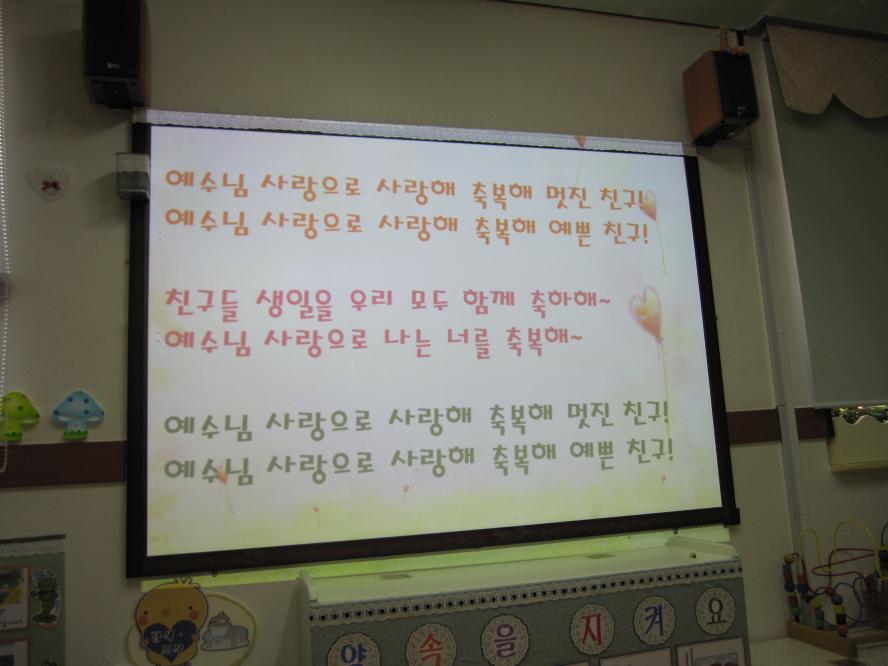 예수님 사랑으로 사랑해 축복해 멋진 친구!
예수님 사랑으로 사랑해 축복해 예쁜 친구!
친구들 생일을 우리 모두 함께 축하해~
예수님 사랑으로 나는 너를 축복해~
예수님 사랑으로 사랑해 축복해 멋진 친구!
예수님 사랑으로 사랑해 축복해 예쁜 친구!
약속을지켜요